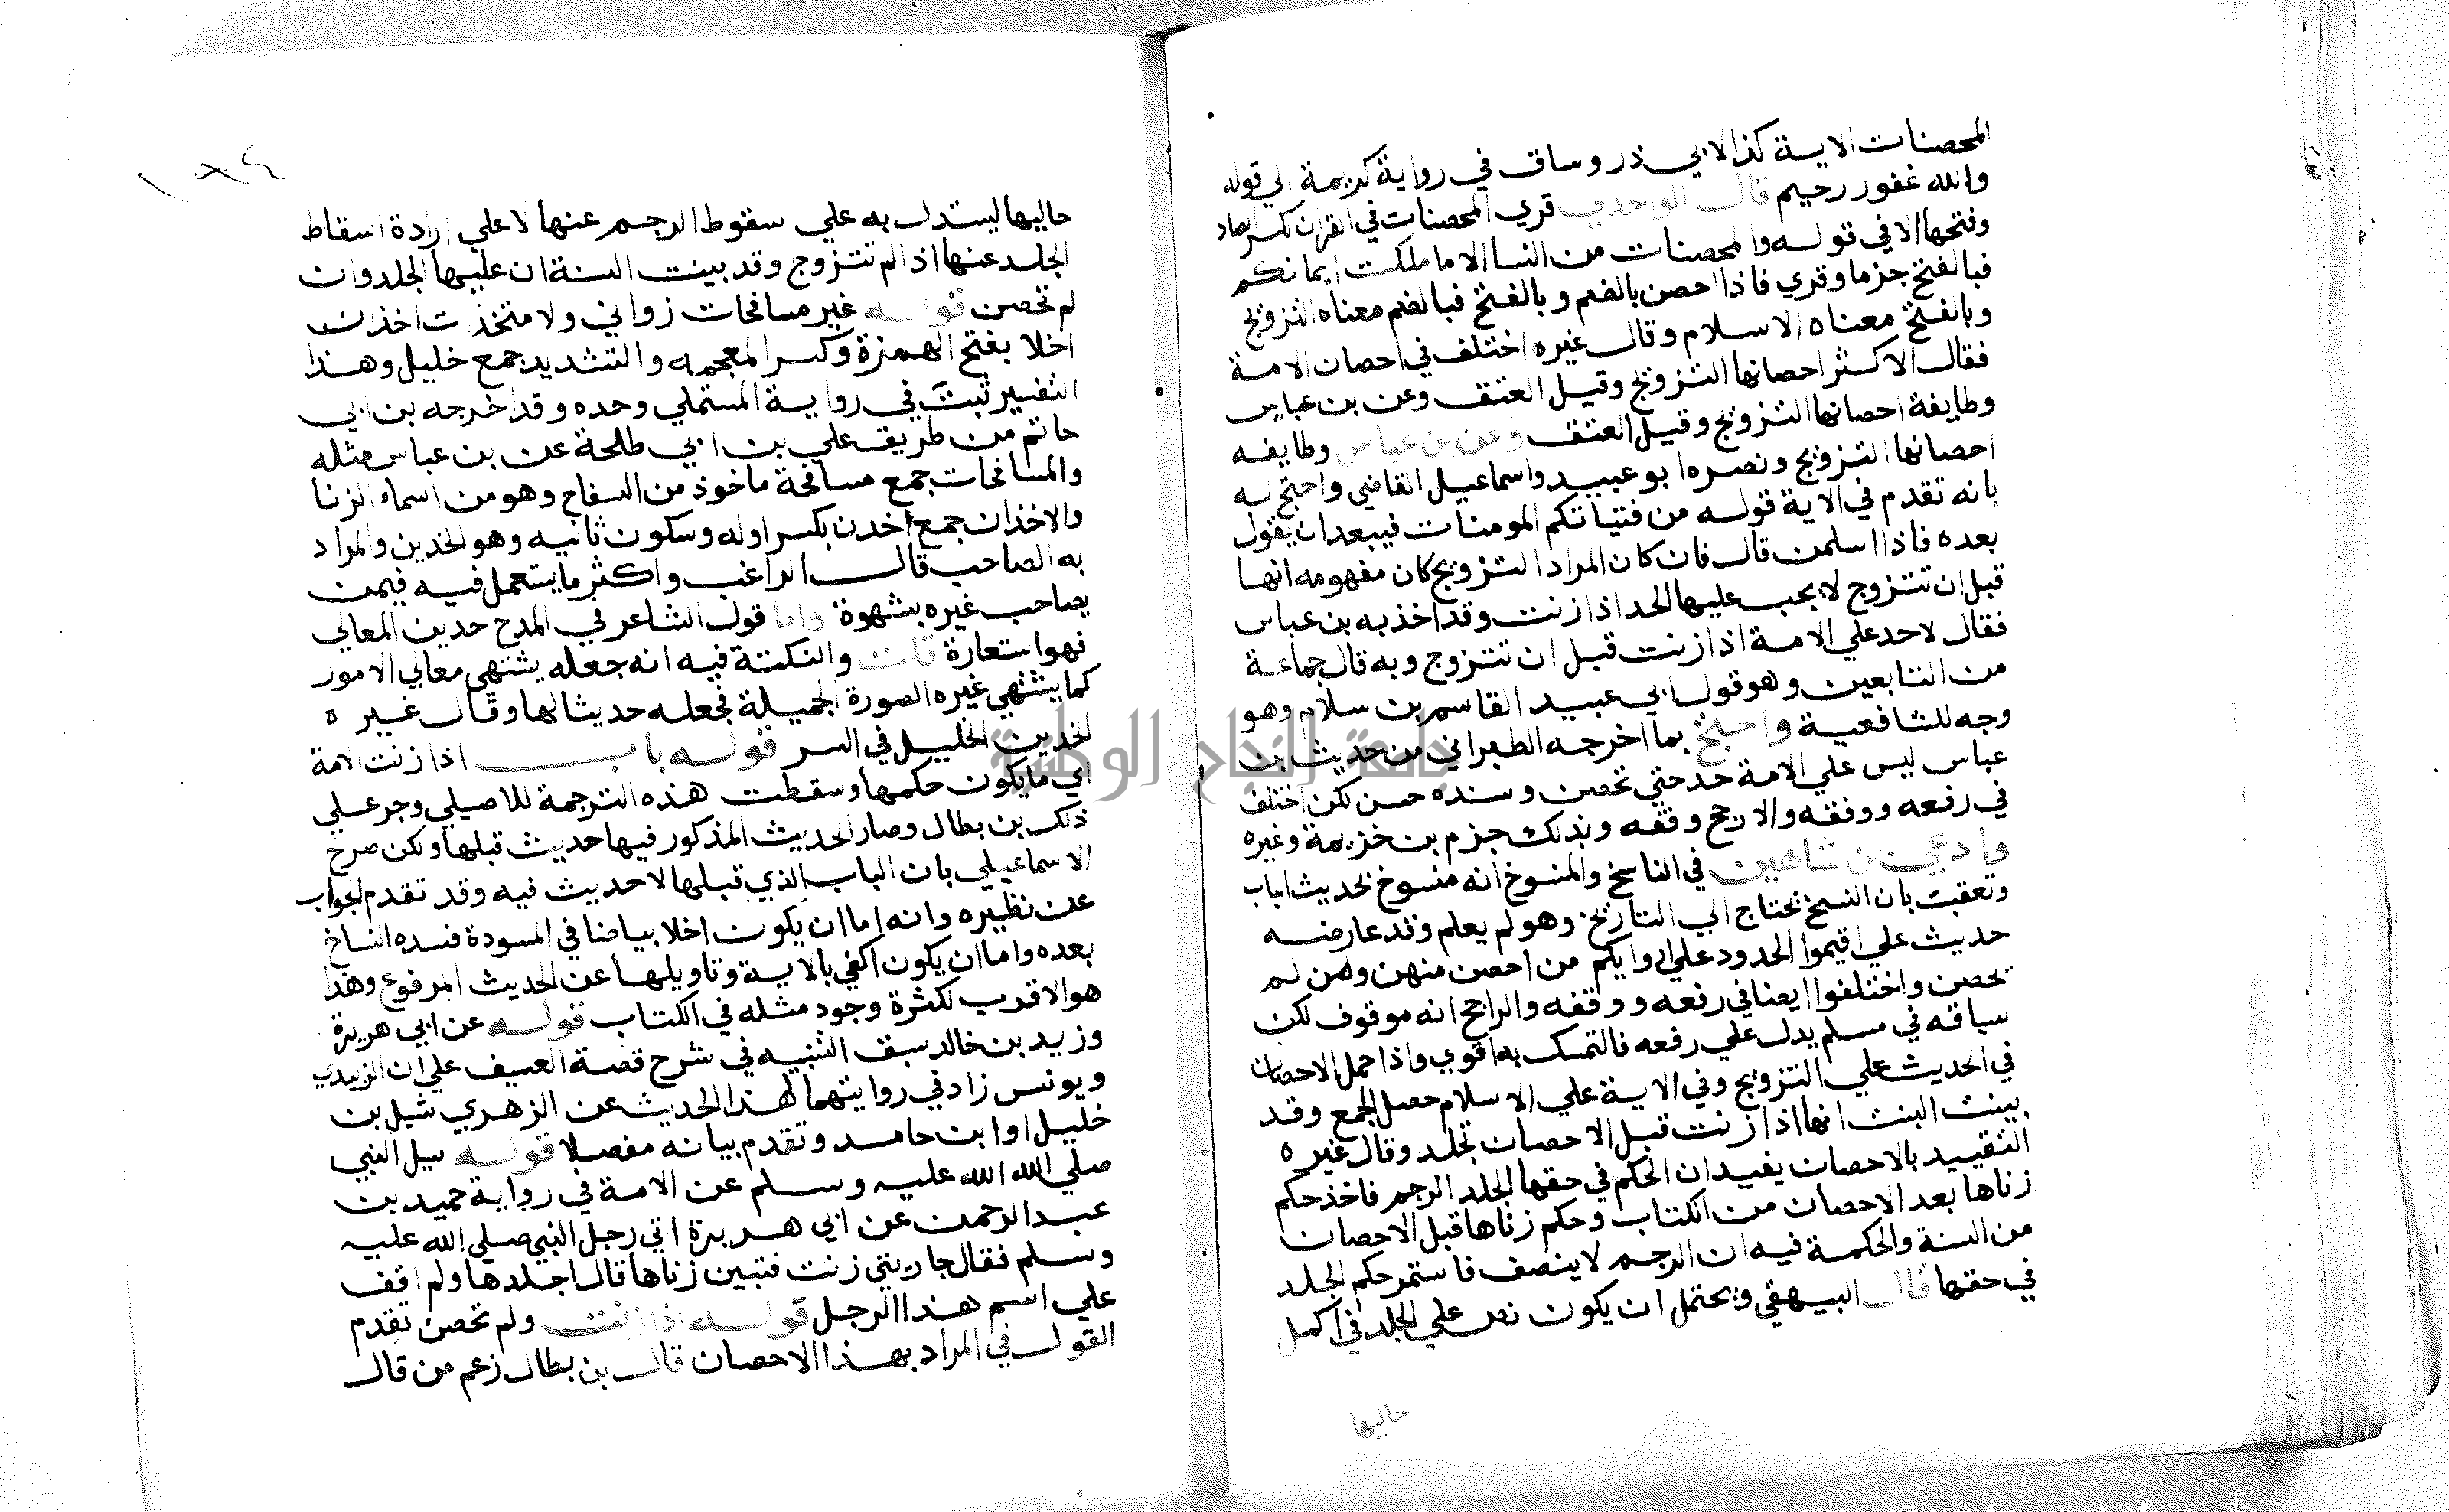 المحصنات الاية كذا لابي ذر وساق في رواية كريمة الي قوله
والله غفور رحيم قال الوحدي قري المحصنات في القران بكسر الصاد
وفتحها الا في قوله والمحصنات من النسا الا ما ملكت ايمانكم
فبالفتح جزما وقري فاذا احصن بالضم وبالفتح فبالضم معناه التزويج
وبالفتح معناه الاسلام وقال غيره اختلف في احصان الامة
فقال الاكثر احصانها التزويج وقيل العتق وعن بن عباس
وطايفة احصانها التزويج وقيل العتق وعن بن عباس وطايفه
احصانها التزويج ونصره ابو عبيد واسماعيل القاضي واحتج له
بانه تقدم في الاية قوله من فتياتكم المومنات فيبعد ان يقول
بعده فاذا اسلمن قال فان كان المراد التزويج كان مفهومه انها
قبل ان تتزوج لا يجب عليها الحد اذا زنت وقد اخذ به بن عباس
فقال لا حد علي الامة اذا زنت قبل ان تتزوج وبه قال جماعة
من التابعين وهو قول ابي عبيد القاسم بن سلام وهو
وجه للشافعية واحتج بما اخرجه الطبراني من حديث بن
عباس ليس علي الامة حد حتي تحصن وسنده حسن لكن اختلف
في رفعه ووفقه والارجح وقفه وبذلك جزم بن خزيمة وغيره
وادعي بن شاهين في الناسخ والمنسوخ انه منسوخ بحديث الباب
وتعقب بان النسخ يحتاج الي التاريخ وهو لم يعلم وقد عارضه
حديث علي اقيموا الحدود علي ارقايكم من احصن منهن ومن لم
يحصن واختلفوا ايضا في رفعه ووقفه والراجح انه موقوف لكن
سياقه في مسلم يدل علي رفعه فالتمسك به اقوي واذا حمل الاحصان
في الحديث علي التزويج وفي الاية علي الاسلام حصل الجمع وقد
بينت البنت انها اذا زنت قبل الاحصان تجلد وقال غيره
التقييد بالاحصان يفيد ان الحكم في حقها الجلد الرجم فاخذ حكم
زناها بعد الاحصان من الكتاب وحكم زناها قبل الاحصان
من السنة والحكمة فيه ان الرجم لا ينصف فاستمر حكم الجلد
في حقها قال البيهقي ويحتمل ان يكون نص علي الجلد في اكمل
حاليها
١٨٤
حاليها ليستدل به علي سقوط الرجم عنها لا علي ارادة اسقاط
الجلد عنها اذا لم تتزوج وقد بينت السنة ان عليها الجلد وان
لم تحصن قوله غير مسافحات زواني ولا متخذت اخذان
اخلا بفتح الهمزة وكسر المعجمه والتشديد جمع خليل وهذا
التفسير ثبت في رواية المستملي وحده وقد اخرجه بن ابي
حاتم من طريق علي بن ابي طلحة عن بن عباس مثله
والمسافحات جمع مسافحة ماخوذ من السفاح وهو من اسماء الزنا
والاخذان جمع اخدن بكسر اوله وسكون ثانيه وهو الخدين والمراد
به الصاحب قال الراغب واكثر ما يستعمل فيه فيمن
يصاحب غيره بشهوة واما قول الشاعر في المدح حدين المعالي
فهو استعارة قلت والنكتة فيه انه جعله يشتهي معالي الامور
كما يشتهي غيره الصورة الجميلة فجعله حديثا لها وقال غيره
الخدين الخليل في السر قوله باب اذا زنت الامة
اي ما يكون حكمها وسقطت هذه الترجمة للاصيلي وجر علي
ذلك بن بطال وصار الحديث المذكور فيها حديث قبلها ولكن صرح
الاسماعيلي بان الباب الذي قبلها لا حديث فيه وقد تقدم الجواب
عن نظيره وانه اما ان يكون اخلا بياضا في المسودة فسده الناسخ
بعده واما ان يكون اكفي بالاية وتاويلها عن الحديث المرفوع وهذا
هو الاقرب لكثرة وجود مثله في الكتاب قوله عن ابي هريرة
وزيد بن خالد سبق التنبيه في شرح قصة العسيف علي ان الزبيدي
ويونس زاد في روايتهما لهذا الحديث عن الزهري شبل بن
خليل او ابن حامد وتقدم بيانه مفصلا قوله سيل النبي
صلي الله الله عليه وسلم عن الامة في رواية حميد بن
عبد الرحمن عن ابي هريرة اتي رجل النبي صلي الله عليه
وسلم فقال جاريتي زنت فتبين زناها قال اجلدها ولم اقف
علي اسم هذا الرجل قوله اذا زنت ولم تحصن تقدم
القول في المراد بهذا الاحصان قال بن بطال زعم من قال
جامعة النجاح الوطنية